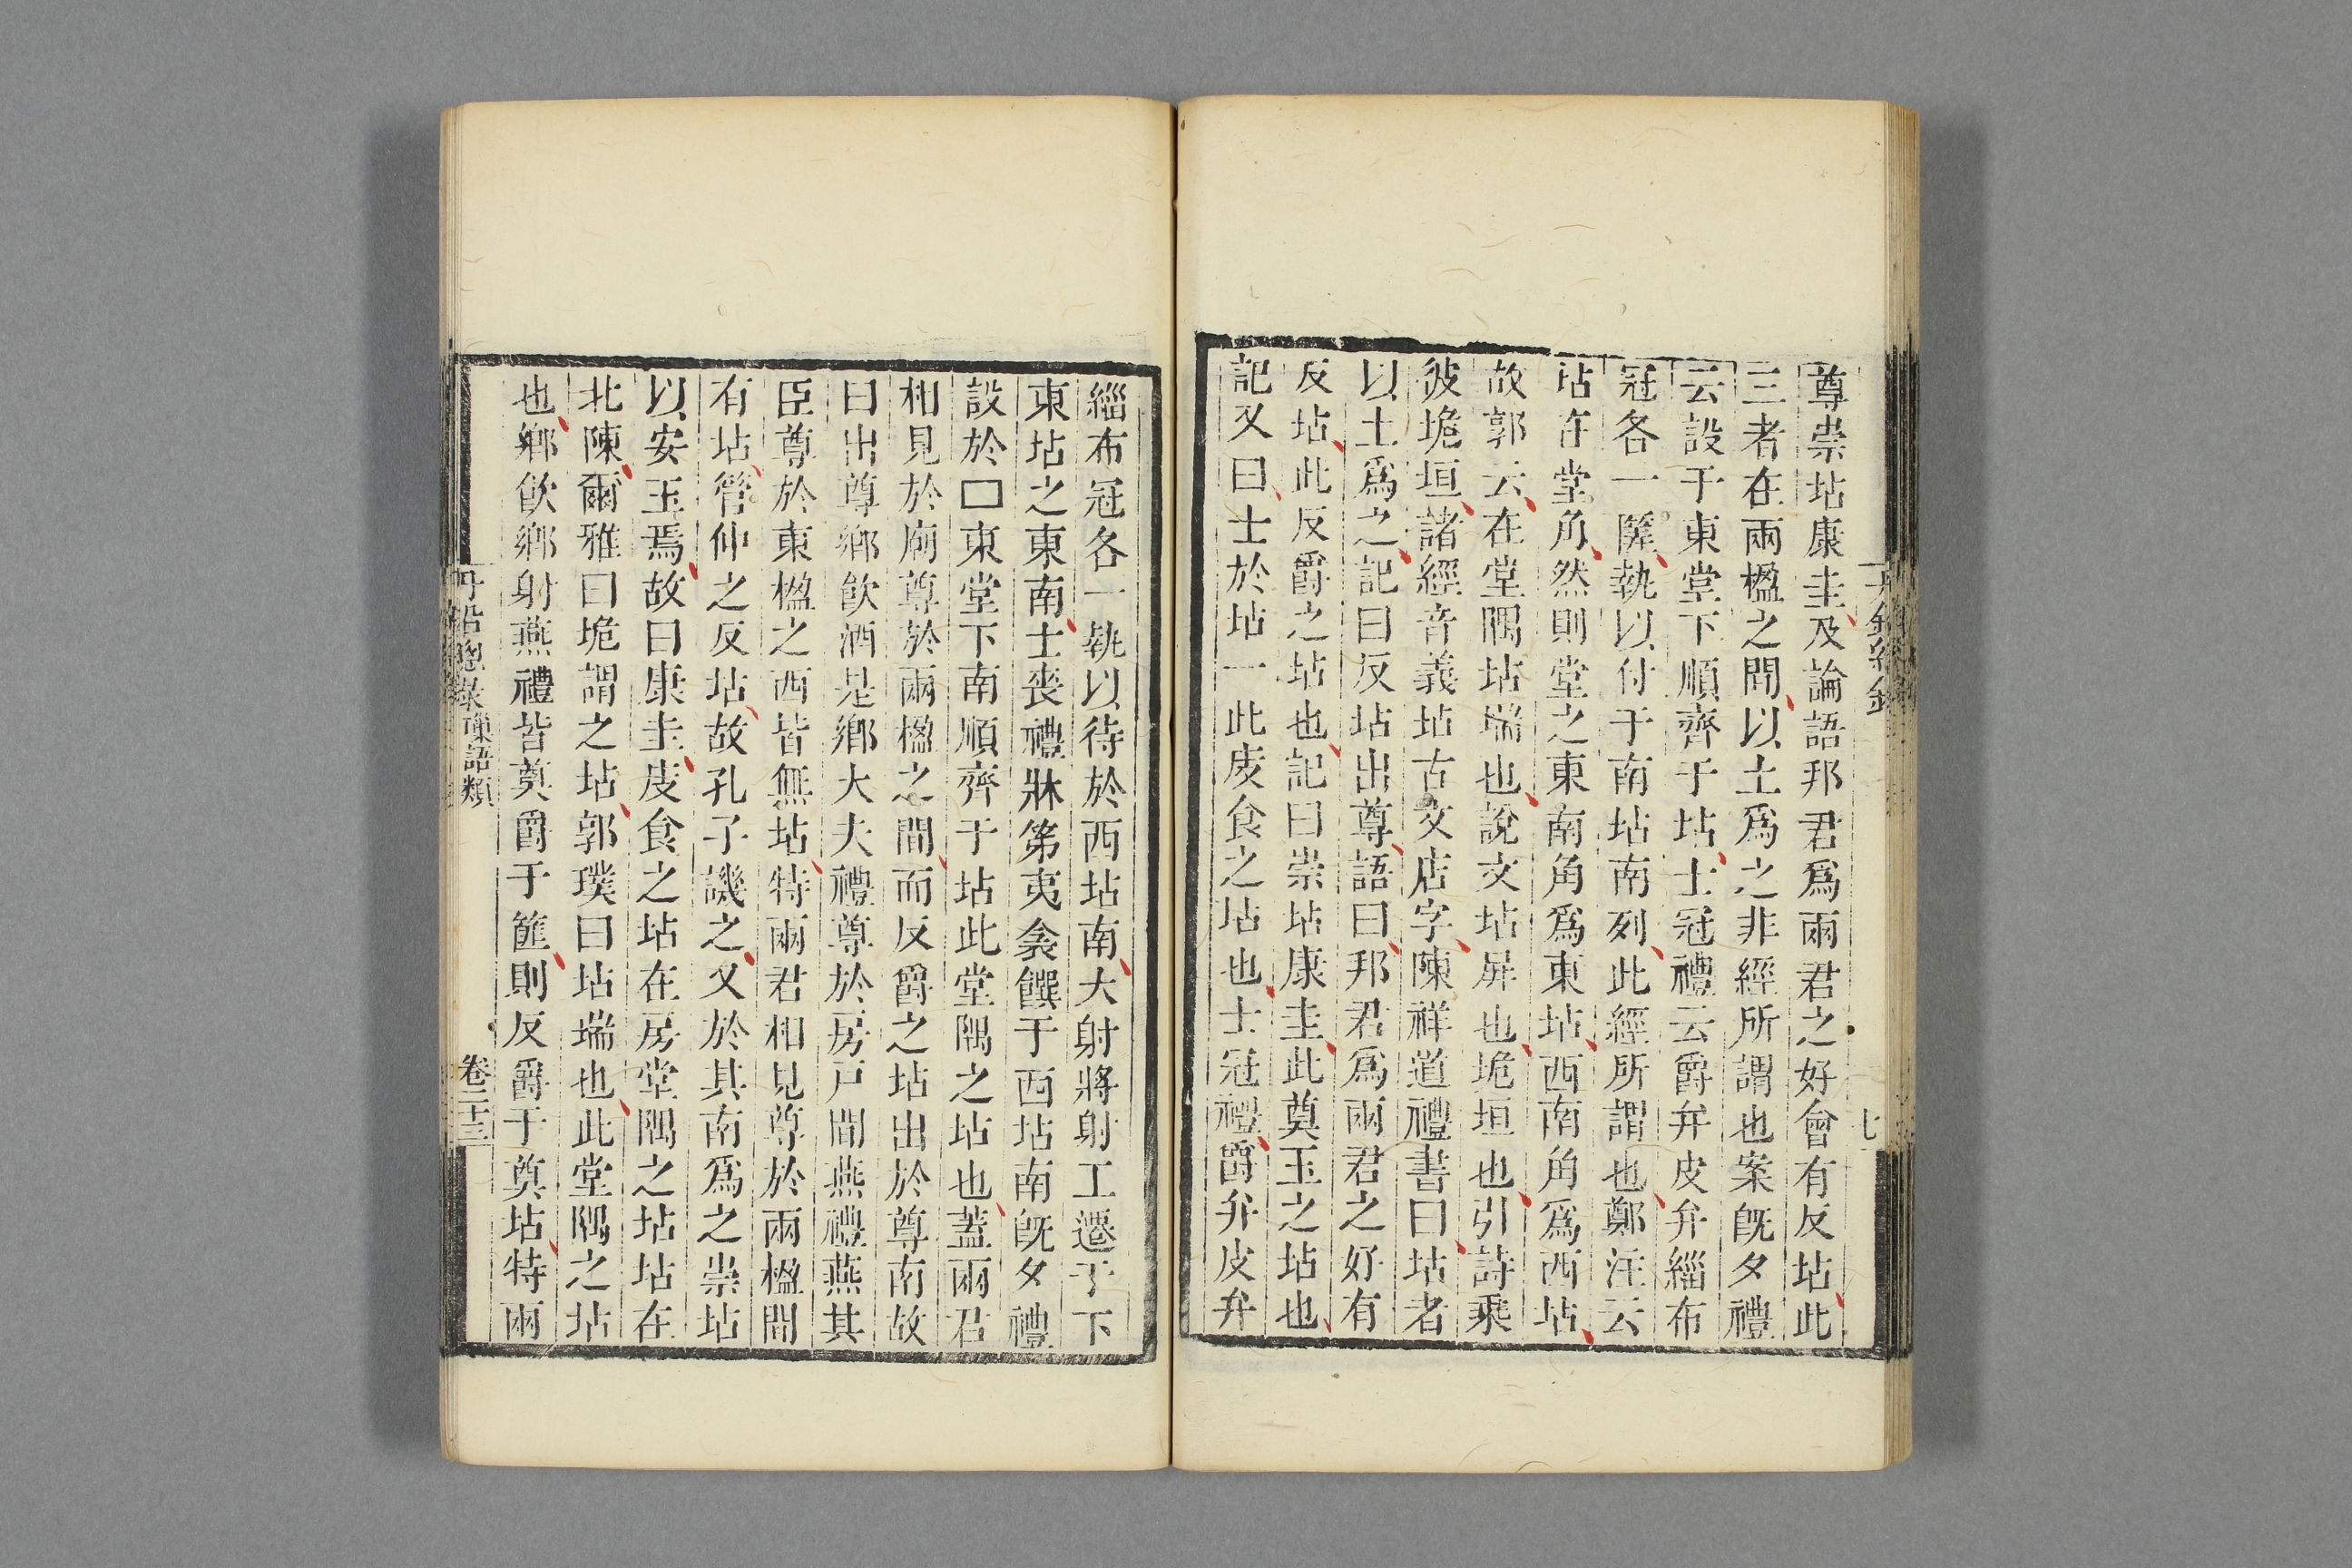 尊崇坫康圭及論語邦君爲兩君之好會有反坫此
三者在兩楹之間以土爲之非經所謂也案旣夕禮
云設于東堂下順齊于坫士冠禮云爵弁皮弁緇布
冠各一匴執以付于南坫南列此經所謂也鄭注云
坫在堂角然則堂之東南角爲東坫西南角爲西坫
故郭云在堂隅坫端也說文坫屏也垝垣也引詩乘
彼垝垣諸經音義坫古文店字陳祥道禮書曰坫者
以土爲之記曰反坫出尊語曰邦君爲兩君之好有
反坫此反爵之坫也記曰崇坫康圭此奠玉之坫也
記又曰士於坫一此庋食之坫也士冠禮爵弁皮弁
緇布冠各一執以待於西坫南大射將射工遷于下
東坫之東南士喪禮牀笫夷衾饌于西坫南旣夕禮
設於□東堂下南順齊于坫此堂隅之坫也蓋兩君
相見於廟尊於兩楹之間而反爵之坫出於尊南故
曰出尊鄉飮酒是鄉大夫禮尊於房戶間燕禮燕其
臣尊於東楹之西皆無坫特兩君相見尊於兩楹間
有坫管仲之反坫故孔子譏之又於其南爲之崇坫
以安玉焉故曰康圭庋食之坫在房堂隅之坫坫在
北陳爾雅曰垝謂之坫郭璞曰坫端也此堂隅之坫
也鄉飮鄉射燕禮皆奠爵于篚則反爵于奠坫特兩
丹鉛總錄 璅語類 卷二十三